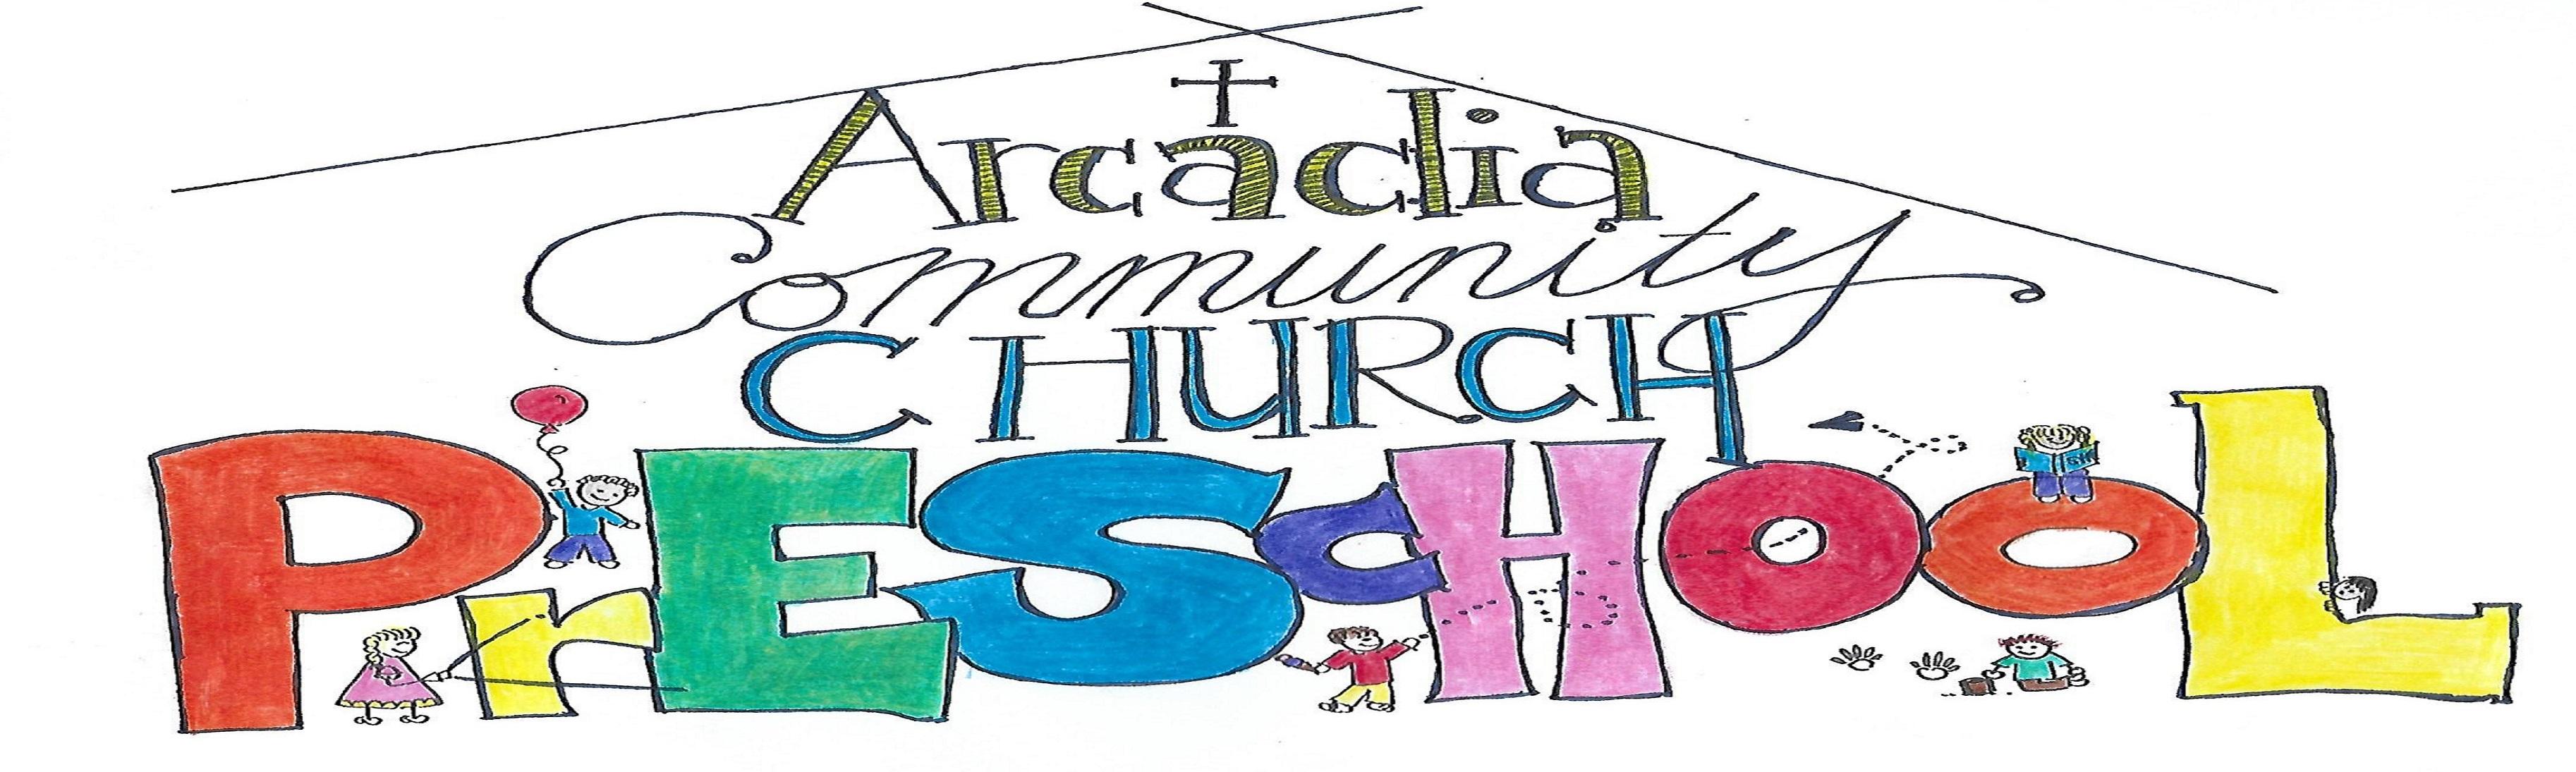 Arcadia
Community
CHURCH
PrEScHOOL